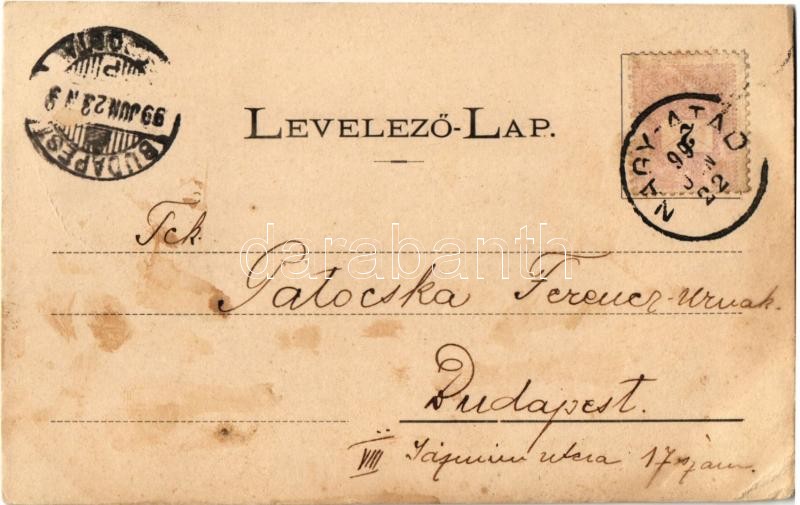 LEVELEZŐ-LAP.
BUDAPEST
99 JUN 23
NAGY-ATÁD
99 JUN 22
Tek.
Patocska Ferencz-urnak.
Budapest.
VIII Jázmin utcza 17 szám.
darabanth